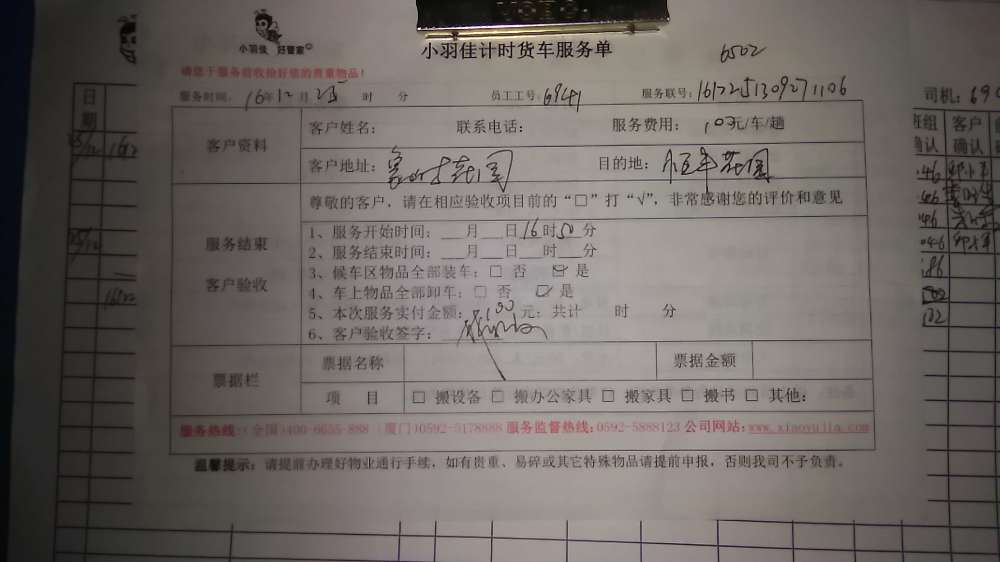 小羽佳 好管家
小羽佳计时货车服务单
6502
请您于服务前收捡好您的贵重物品!
服务时间: 16年12月25 时 分 员工工号: 6941 服务联号: 1612251309271106
客户资料
客户姓名: 联系电话: 服务费用: 100元/车/趟
客户地址: 目的地: 恒丰花园
服务结束
客户验收
尊敬的客户,请在相应验收项目前的“□”打“√”,非常感谢您的评价和意见
1、服务开始时间: 月 日16时50分
2、服务结束时间: 月 日 时 分
3、候车区物品全部装车: □ 否 ☑ 是
4、车上物品全部卸车: □ 否 ☑ 是
5、本次服务实付金额: 100元; 共计 时 分
6、客户验收签字:
票据栏
票据名称 票据金额
项 目 □ 搬设备 □ 搬办公家具 □ 搬家具 □ 搬书 □ 其他:
服务热线:(全国)400-6655-888 (厦门)0592-5178888 服务监督热线:0592-5888123 公司网站:www.xiaoyujia.com
温馨提示: 请提前办理好物业通行手续,如有贵重、易碎或其它特殊物品请提前申报,否则我司不予负责。
日期
司机: 690
班组 客户
确认 确认